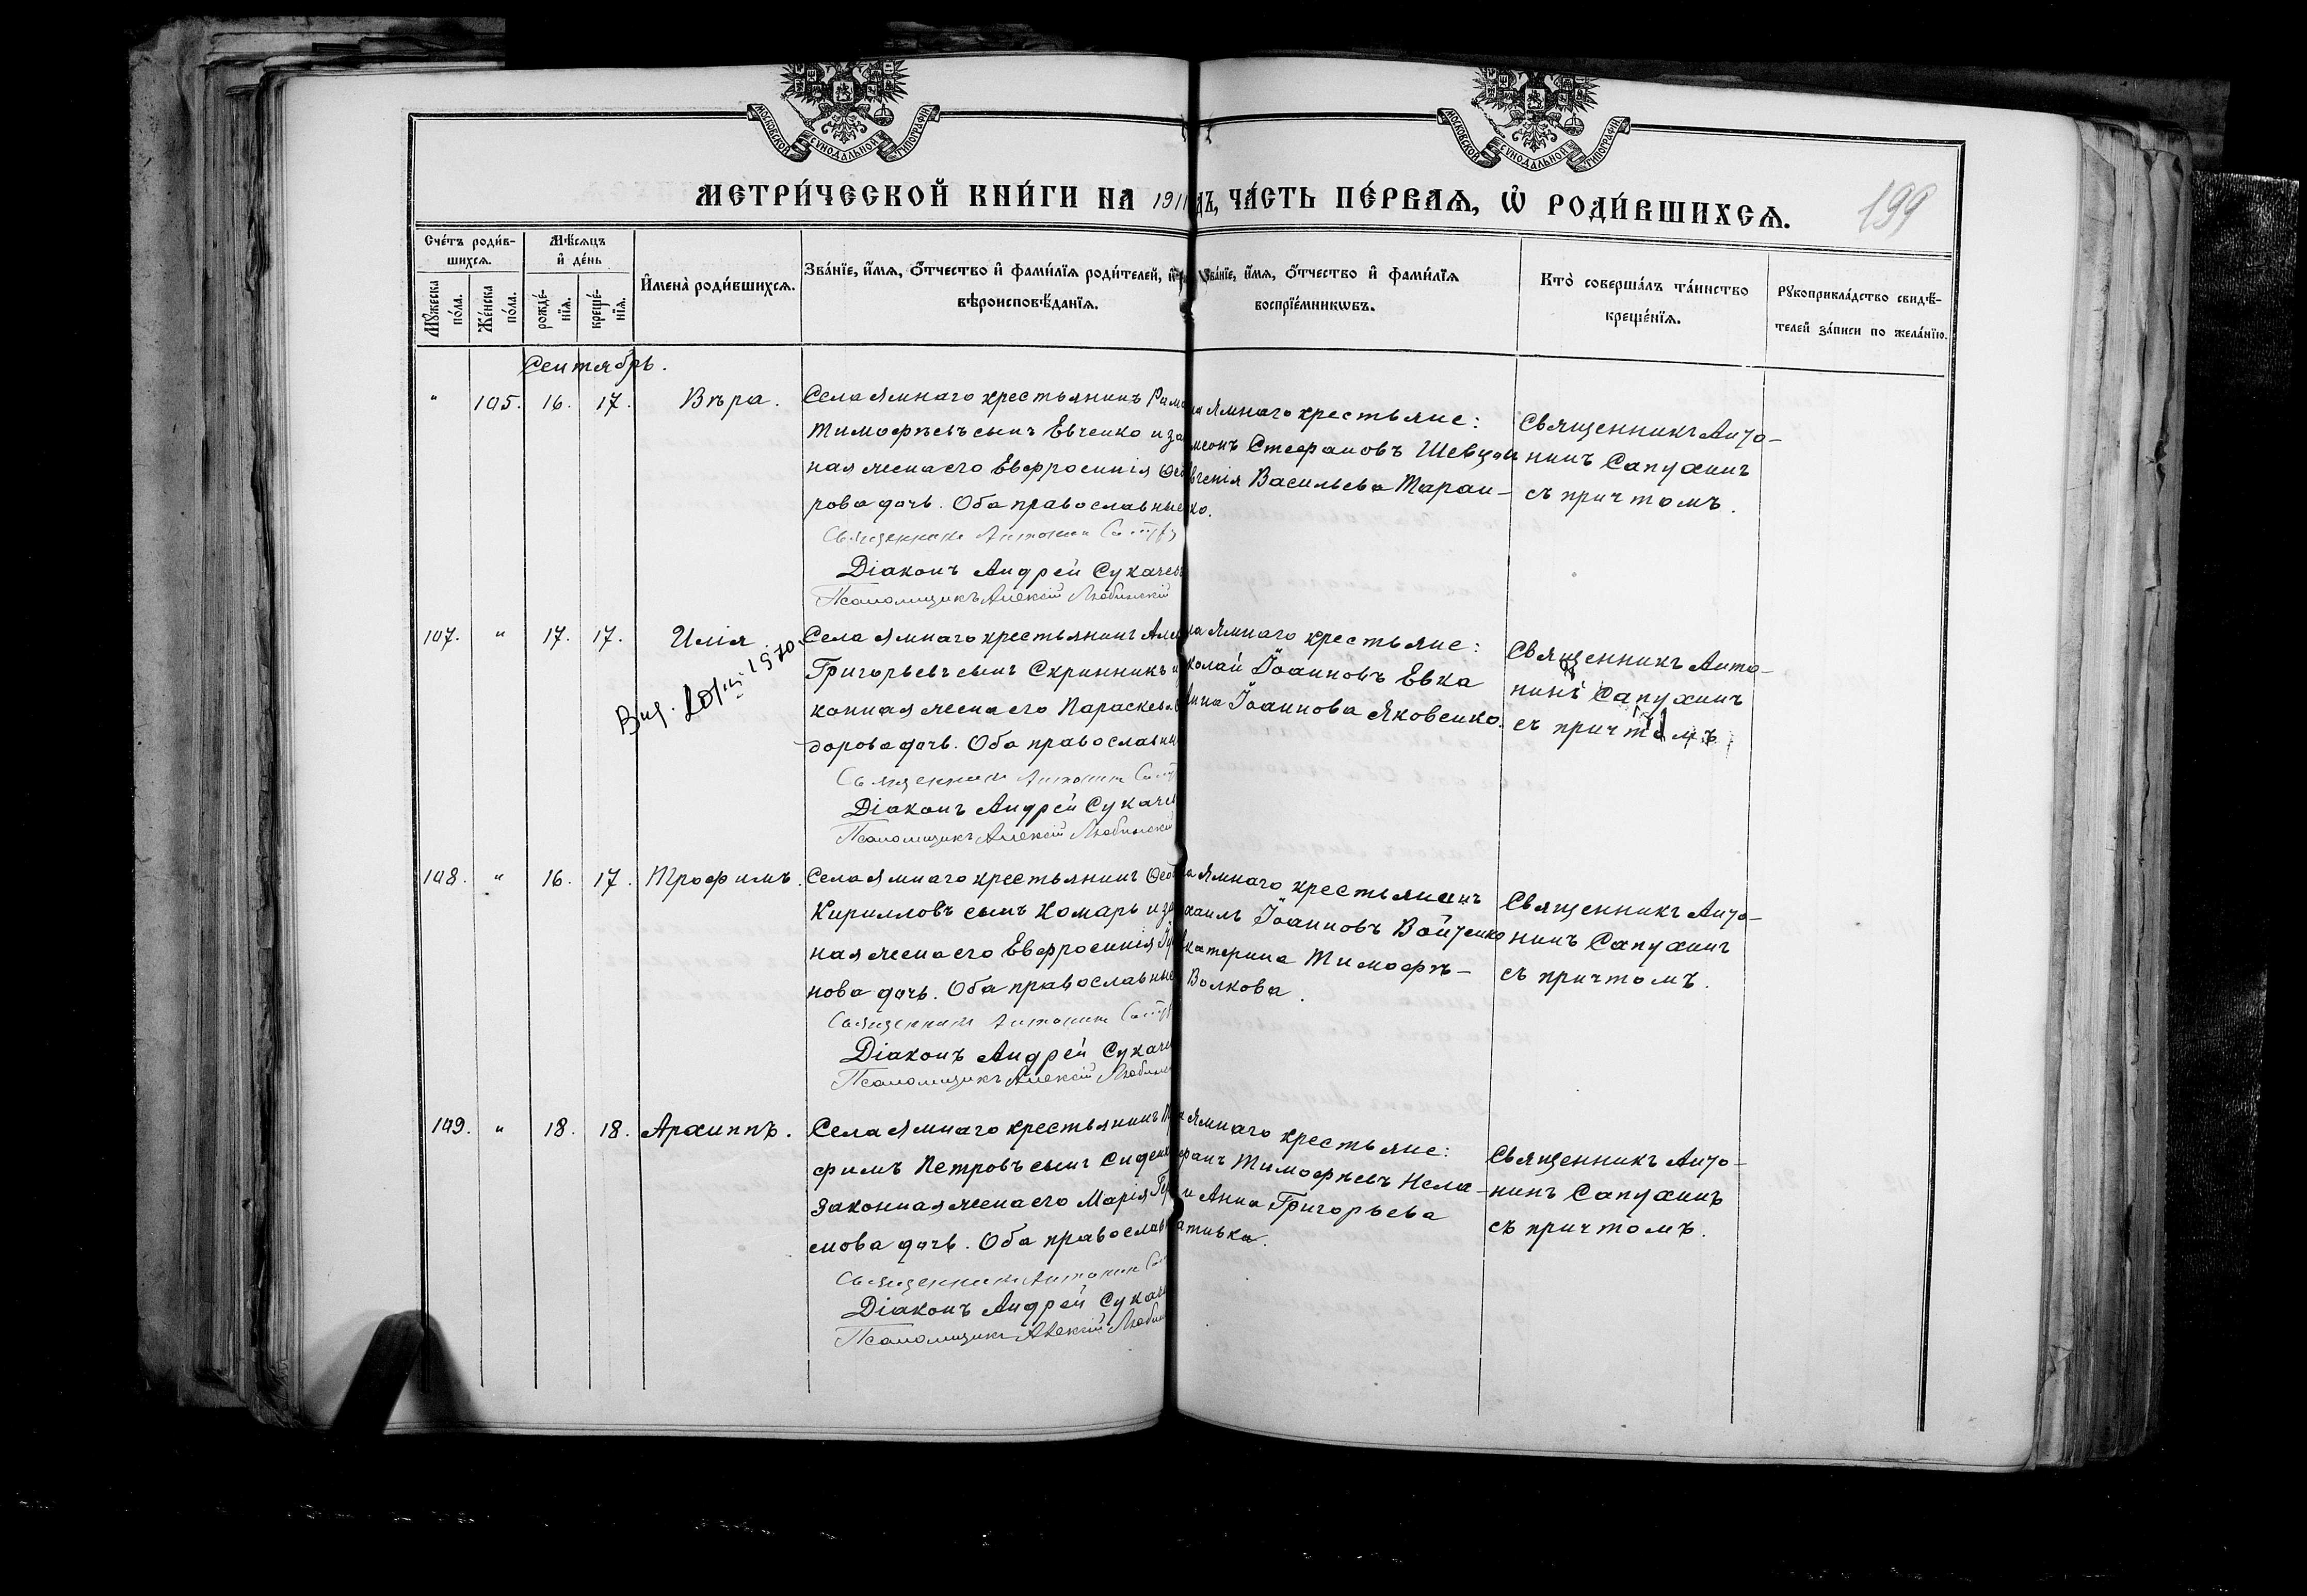 МОСКОВСКОЙ СѴНОДАЛЬНОЙ ТИПОГРАФІИ
МОСКОВСКОЙ СѴНОДАЛЬНОЙ ТИПОГРАФІИ
МЕТРИ́ЧЕСКОЙ КНИ́ГИ НА 1911 ДЪ, ЧА́СТЬ ПЕ́РВАѦ, Ѡ҆ РОДИ́ВШИХСѦ.
199
Сче́тъ роди́в-
шихсѧ.
Мѣ́сѧцъ
и҆ де́нь
Мꙋ́жеска по́ла.
Же́нска по́ла.
рожде́-нїѧ.
креще́-нїѧ.
И҆мена̀ роди́вшихсѧ.
Зва́нїе, и҆́мѧ, ѻ҆́тчество и҆ фами́лїѧ роди́телей, и҆
вѣроисповѣ́данїѧ.
Зва́нїе, и҆́мѧ, ѻ҆́тчество и҆ фами́лїѧ
воспрїе́мникѡвъ.
Кто̀ соверша́лъ та́инство
креще́нїѧ.
Рꙋкоприкла́дство свидѣ́-
телей за́писи по жела́нїю.
Сентябрь.
" 105. 16. 17. Вѣра.
Села Ямнаго крестьянинъ Рома
Тимофѣевъ сынъ Евченко и зо
ная жена его Евфросинія Ѳео
рова дочь. Оба православные
Священникъ Антонин
Діаконъ Андрей Сукачевъ
Псаломщикъ Алексій Любинскій
на Ямнаго крестьяне:
меонъ Стефановъ Шевцон
вгенія Васильева Таран-
ко.
Священникъ Анто-
нинъ Сапухинъ
съ причтомъ.
107. " 17. 17. Илія
Вид. 1970
Села Ямнаго крестьянинъ Але
Григорьевъ сынъ Скринникъ и
конная жена его Параскева
дорова дочь. Оба православны
Священникъ Антонин
Діаконъ Андрей Сукаче
Псаломщикъ Алексій Любинскій
ла Ямнаго крестьяне:
колай Іоанновъ Евка
Анна Іоаннова Яковенко.
Священникъ Анто-
нинъ Сапухинъ
съ причтомъ
108. " 16. 17. Трофимъ.
Села Ямнаго крестьянинъ Ѳео
Кирилловъ сынъ Комарь и за
ная жена его Евфросинія
нова дочь. Оба православные
Священникъ Антонин
Діаконъ Андрей Сукаче
Псаломщикъ Алексій Любинс
а Ямнаго крестьянинъ
хаилъ Іоанновъ Войтенко
катерина Тимофѣ-
Волкова.
Священникъ Анто-
нинъ Сапухинъ
съ причтомъ.
109. " 18. 18. Архиппъ.
Села Ямнаго крестьянинъ
фимъ Петровъ сынъ Сиденк
законная жена его Марія
снова дочь. Оба православ
Священникъ Антонин
Діаконъ Андрей Сукаче
Псаломщикъ Алексій Люби
Ямнаго крестьяне:
фанъ Тимофѣевъ Нела-
и Анна Григорьева
ативка.
Священникъ Анто-
нинъ Сапухинъ
съ причтомъ.